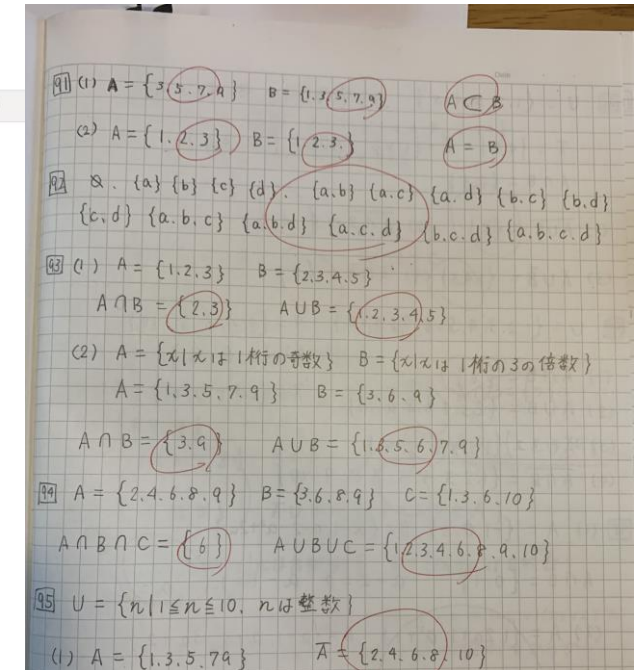 91 (1) A = {3.5.7.9} B = {1.3.5.7.9} A ⊂ B
(2) A = {1.2.3} B = {1.2.3.} A = B
92 {a} {b} {c} {d}. {a.b} {a.c} {a.d} {b.c} {b.d}
{c.d} {a.b.c} {a.b.d} {a.c.d} {b.c.d} {a.b.c.d}
93 (1) A = {1.2.3} B = {2.3.4.5}
A∩B = {2.3} A∪B = {1.2.3.4.5}
(2) A = {x|xは1桁の奇数} B = {x|xは1桁の3の倍数}
A = {1.3.5.7.9} B = {3.6.9}
A∩B = {3.9} A∪B = {1.3.5.6.7.9}
94 A = {2.4.6.8.9} B = {3.6.8.9} C = {1.3.6.10}
A∩B∩C = {6} A∪B∪C = {1.2.3.4.6.8.9.10}
95 U = {n|1≦n≦10, nは整数}
(1) A = {1.3.5.79} A̅ = {2.4.6.8.10}